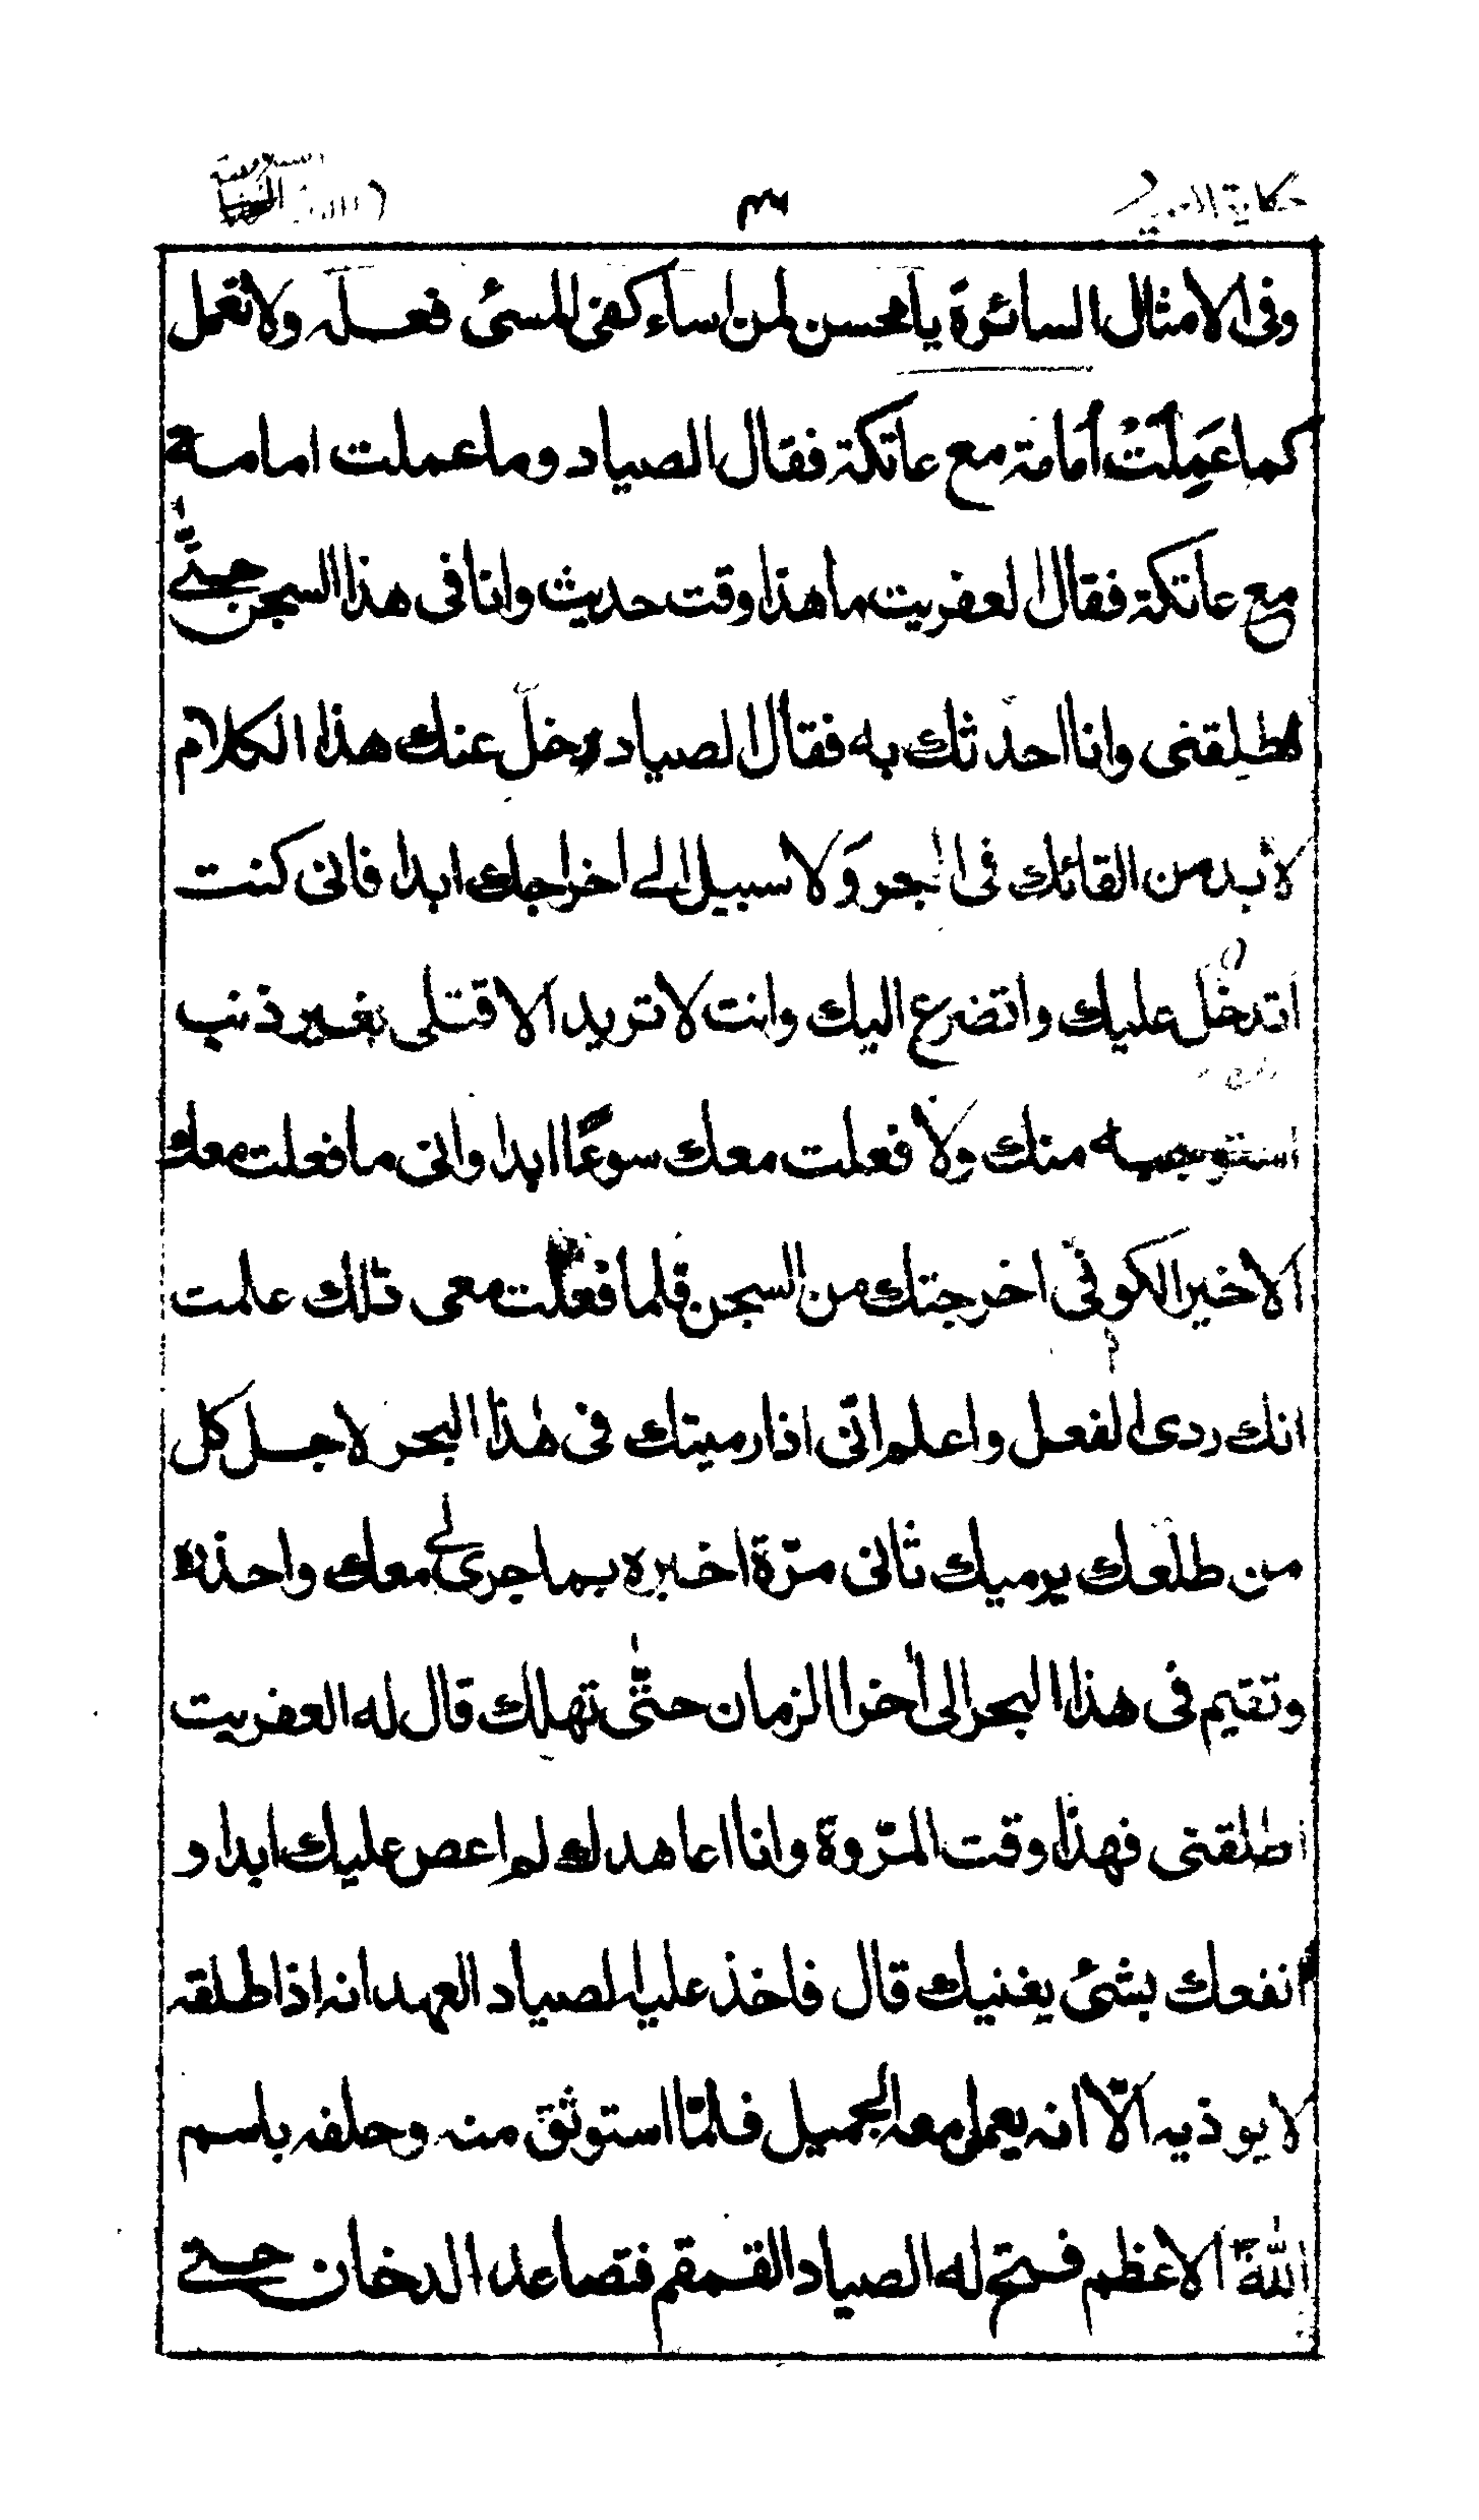 وفى الامثال السائرة يا محسن لمن اساء كفى المسئ فعله ولا تعمل
كما عَمِلَتْ أمَامة مع عاتكة فقال الصياد وما عملت امامة
مع عاتكة فقال العفريت ما هذا وقت حديث وانا فى هذا السجن حتّٰى
تطلقنى وانا احدثك به فقال الصياد خل عنك هذا الكلام
لابد من القائك فى البحر وَلا سبيل الى اخراجك ابدا فانى كنت
اتدخل عليك واتضرع اليك وانت لا تريد الا قتلى بغير ذنب
استوجبه منك ولا فعلت معك سوءًا ابدا وانى ما فعلت معك
الا خيرا لكونى اخرجتك من السجن فلما فعلت معى ذلك علمت
انك ردى الفعل واعلم انى اذا رميتك فى هٰذا البحر لاجل كل
من طلعك يرميك ثانى مرّة اخبره بما جرى لى معك واحذره
وتقيم فى هذا البحر الى اٰخر الزمان حتّٰى تهلك قال له العفريت
اطلقنى فهذا وقت المرّوة وانا اعاهدك لم اعص عليك ابدا و
انفعك بشئ يغنيك قال فاخذ عليه الصياد العهد انه اذا اطلقه
لا يوذيه الّا انه يعمل معه الجميل فلمّا استوثق منه وحلفه باسم
اللّٰه الاعظم فتح له الصياد القمقم فتصاعد الدخان حتى